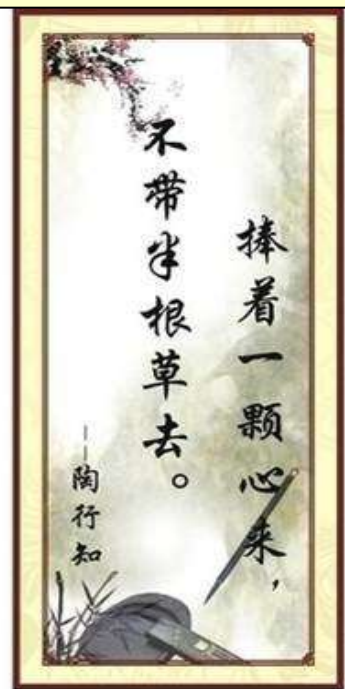 捧着一颗心来，
不带半根草去。
——陶行知